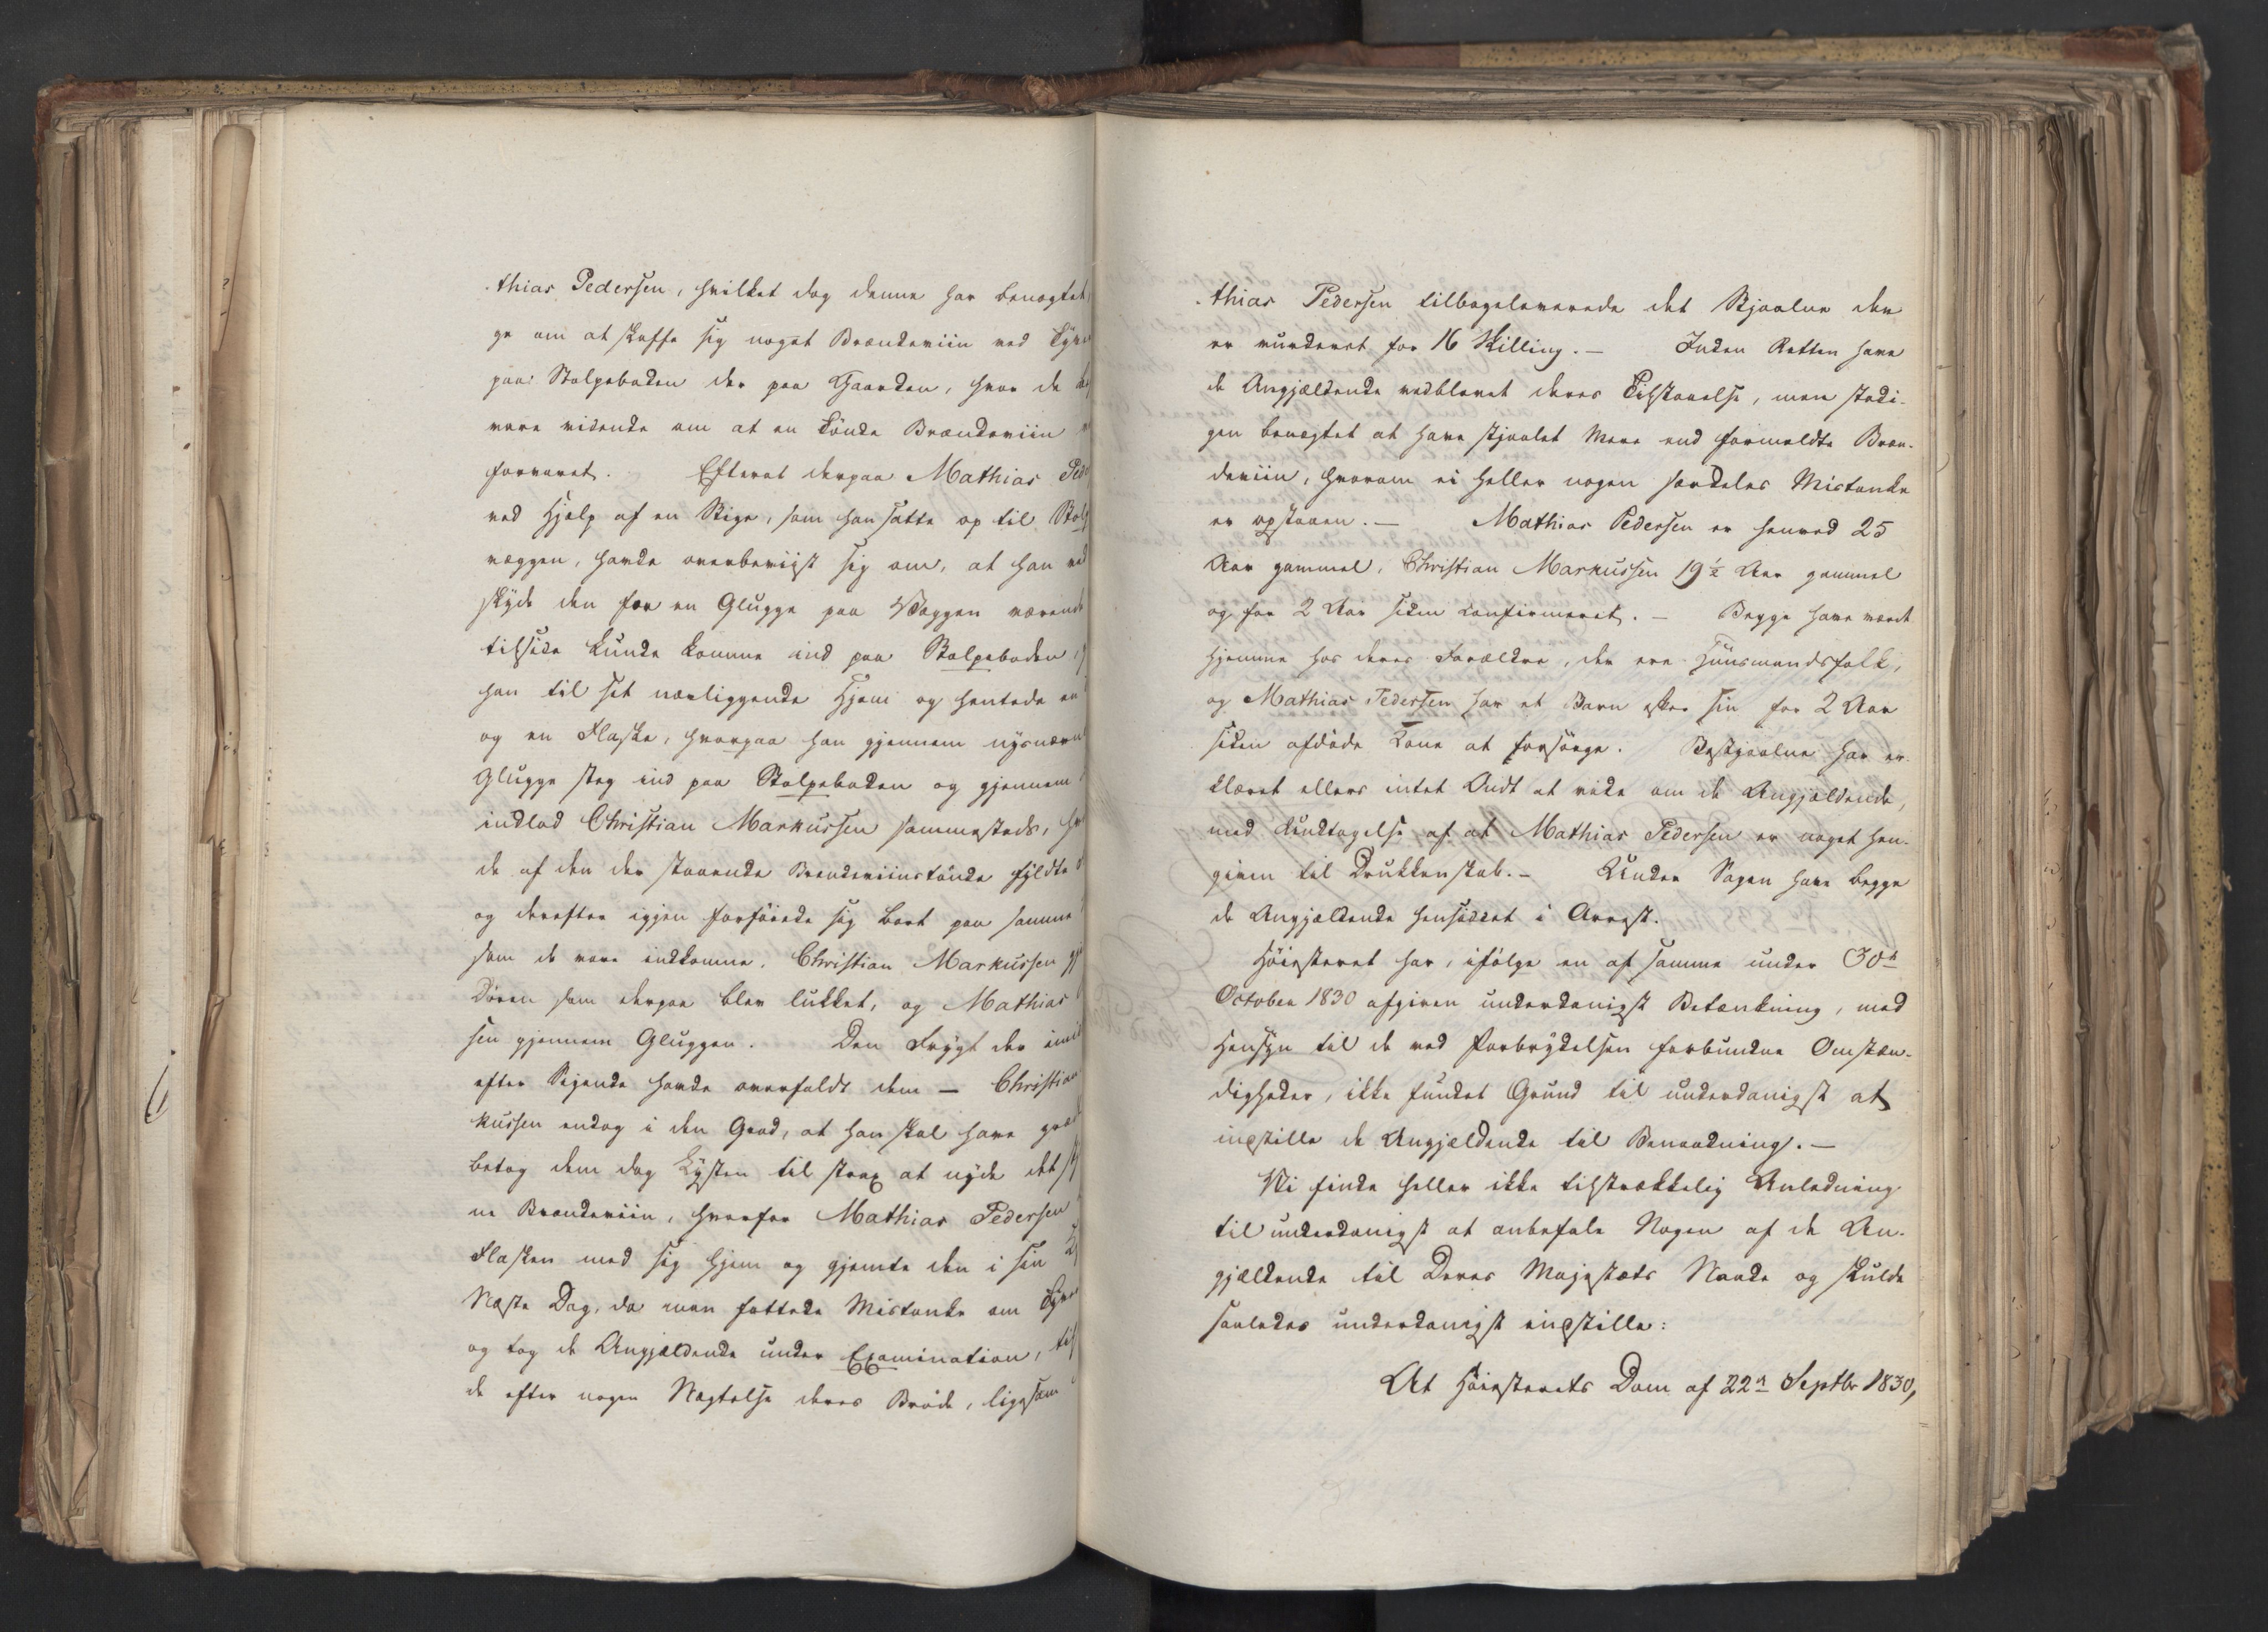 thias Pedersen, hvilket dog denne har benægtet,
ge om at skaffe sig noget Brændeviin ved
paa Stolpeboden der paa Gaarden, hvor de
vare vidende om at en Tønde Brændeviin
forvaret. Efterat derpaa Mathias
ved Hjelp af en Stige, som han satte op til
væggen, havde overbeviist sig om, at han ved
skyde den for en Glugge paa Væggen værende
tilside kunde komme ind paa Stolpeboden,
han til sit nærliggende Hjem og hentede en
og en Flaske, hvorpaa han gjennem nysnævnte
Glugge steg ind paa Stolpeboden og gjennem
indlod Christian Markussen sammesteds,
de af den der staaende Brændeviinstønde fyldte
og derefter igjen forføiede sig bort paa samme
som de vare indkomne, Christian Markussen
Døren som derpaa blev lukket, og Mathias
sen gjennem Gluggen. Den Frygt der
efter Sigende havde overfaldt dem — Christian
kussen endog i den Grad, at han skal have
betog dem dog Lysten til strax at nyde det
ne Brændeviin, hvorfor Mathias Pedersen
Flasken med sig hjem og gjemte den i sin
Næste Dag, da man fattede Mistanke om
og tog de Angjældende under Examination,
de efter nogen Nægtelse deres Brøde, ligesom
thias Pedersen tilbageleverede det Stjaalne der
er vurderet for 16 Skilling. — Inden Retten have
de Angjældende vedblevet deres Tilstaaelse, men stadi-
gen benægtet at have stjaalet mere end formeldte Bræn-
deviin, hvorom ei heller nogen særdeles Mistanke
er opstaaen. — Mathias Pedersen er henved 25
Aar gammel, Christian Markussen 19½ Aar gammel
og for 2 Aar siden confirmeret. — Begge have været
hjemme hos deres Forældre, der ere Huusmandsfolk,
og Mathias Pedersen har et Barn efter sin for 2 Aar
siden afdøde Kone at forsørge. Bestjaalne har er-
klæret ellers intet Ondt at vide om de Angjældende,
med Undtagelse af at Mathias Pedersen er noget hen-
given til Drukkenskab. — Under Sagen have begge
de Angjældende hensiddet i Arrest.
Høiesteret har, ifølge en af samme under 30te
October 1830 afgiven underdanigst Betænkning, med
Hensyn til de ved Forbrydelsen forbundne Omstæn-
digheder, ikke fundet Grund til underdanigst at
indstille de Angjældende til Benaadning. —
Vi finde heller ikke tilstrækkelig Anledning
til underdanigst at anbefale Nogen af de An-
gjældende til Deres Majestæts Naade og skulde
saaledes underdanigst indstille:
At Høiesterets Dom af 22de Septbr 1830,